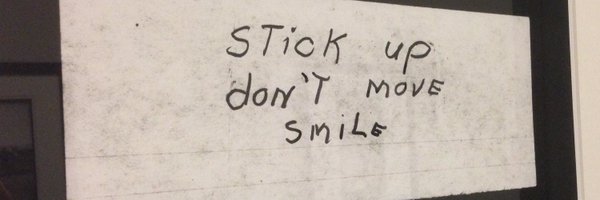 STiCK up
don'T move
smiLE